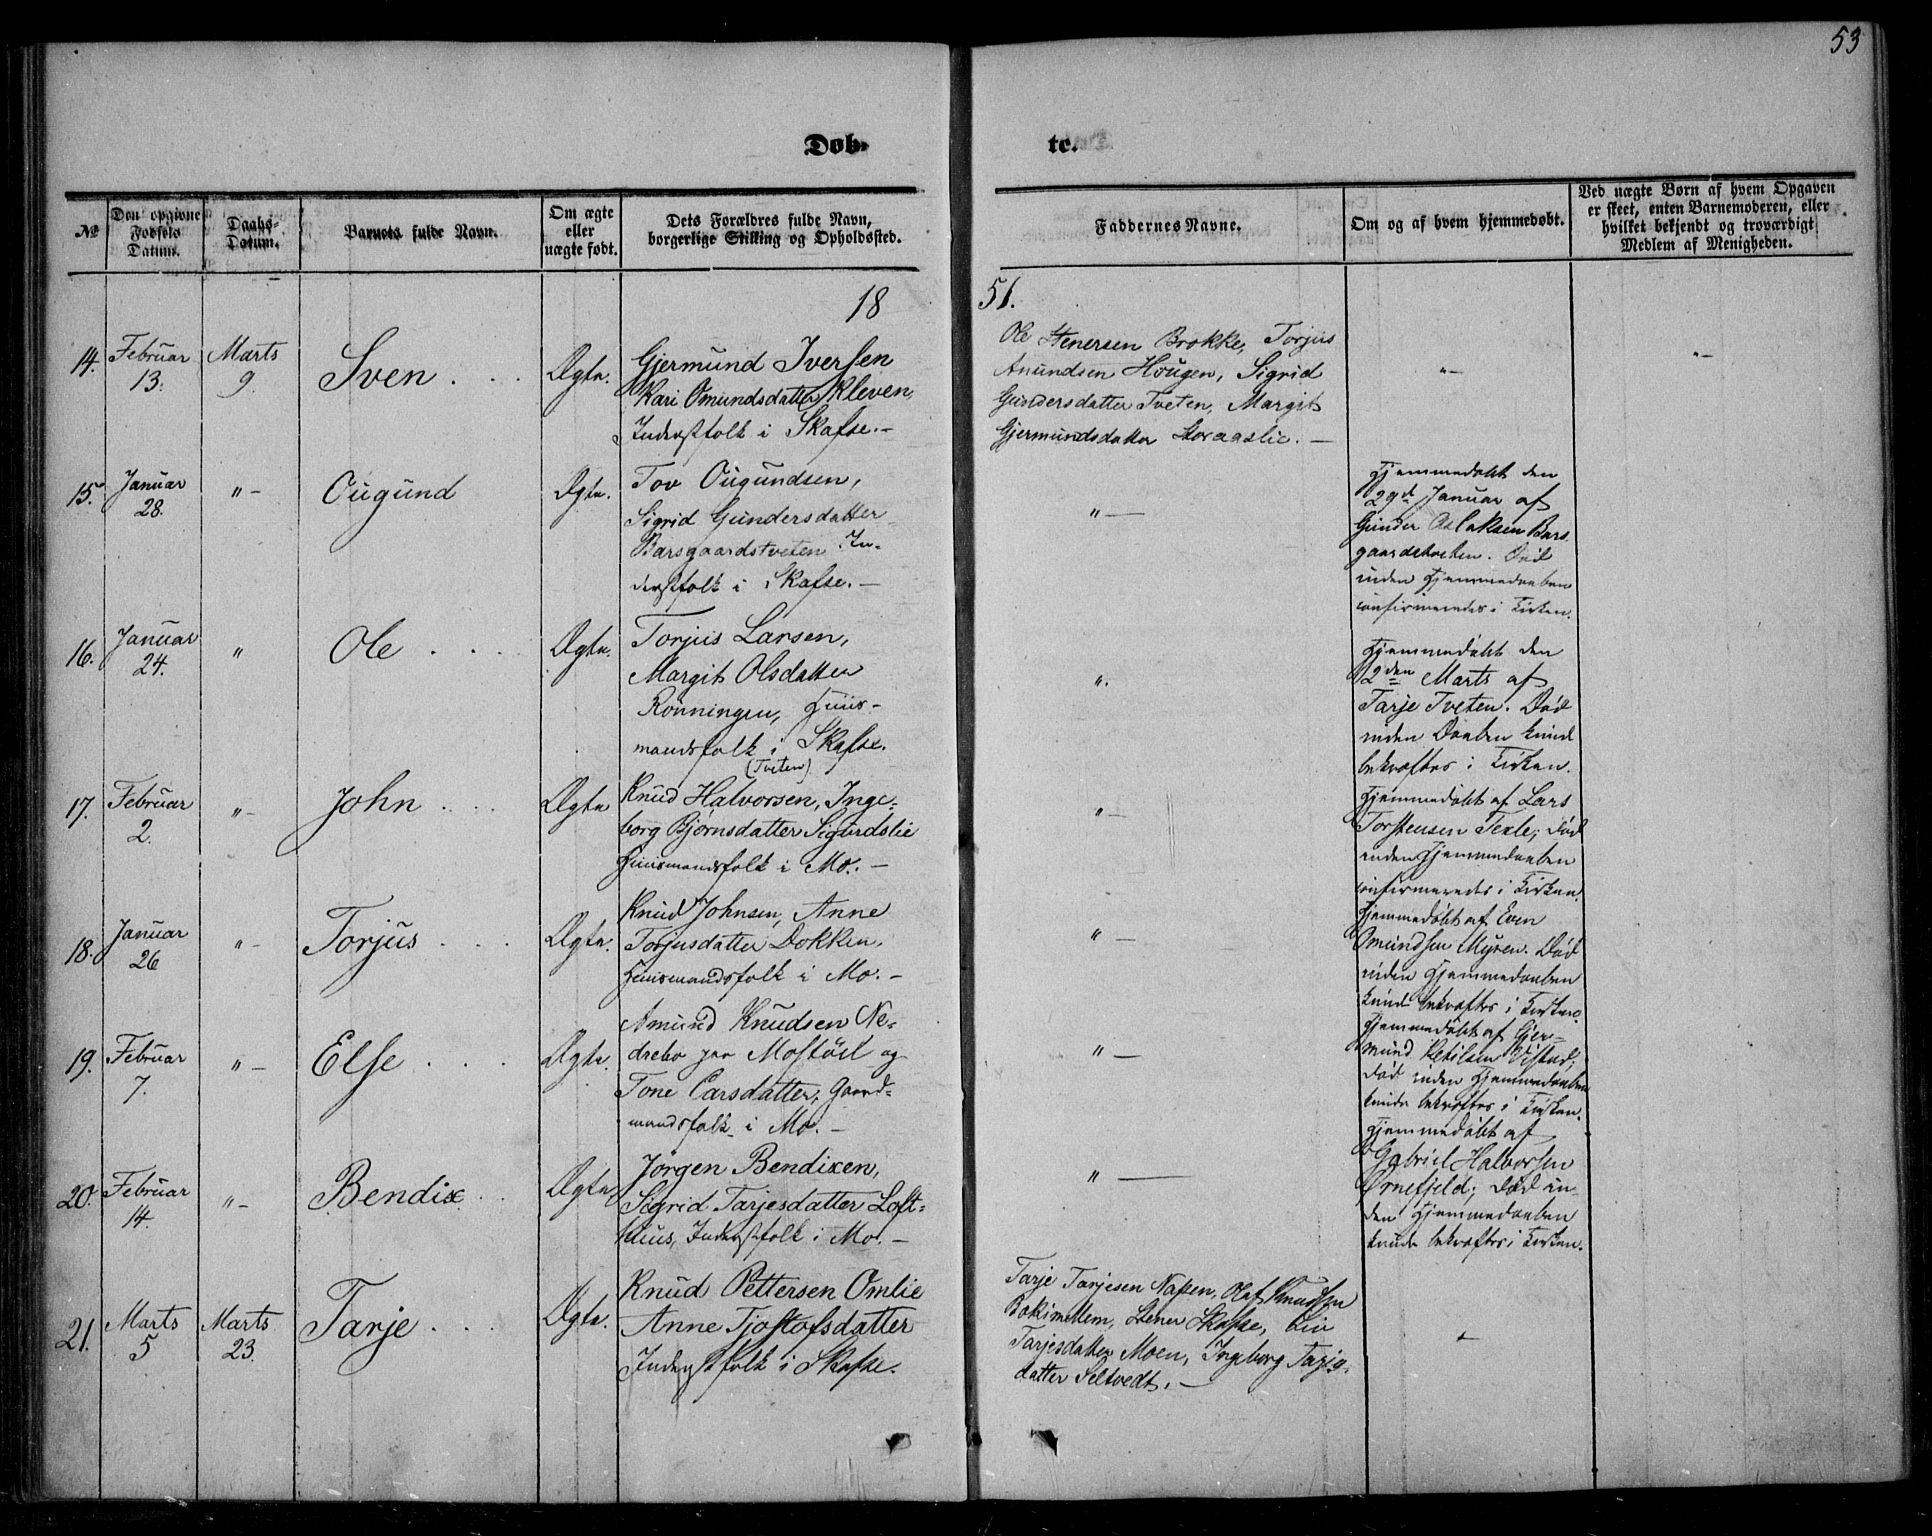 53
Døb-
te.
№
Den opgivne
Fødsels
Datum.
Daabs-
Datum.
Barnets fulde Navn.
Om ægte
eller
uægte født.
Dets Forældres fulde Navn,
borgerlige Stilling og Opholdssted.
Faddernes Navne.
Om og af hvem hjemmedøbt.
Ved uægte Børn af hvem Opgaven
er skeet, enten Barnemoderen, eller
hvilket bekjendt og troværdigt
Medlem af Menigheden.
18
51.
14.
Februar
13.
Marts
9.
Sven
Ægte.
Gjermund Iversen
Kari Omundsdatter Kleven
Inderstfolk i Skafse.-
Ole Stenersen Brokke, Torjus
Anundsen Hougen, Sigrid
Gundersdatter Tveten, Margit
Gjermundsdatter Storaaslie. -
"-
"-
15.
Januar
28.
"-
Ougund
Ægte.
Tov Ougundsen,
Sigrid Gundersdatter
Barsgaardstveten In-
derstfolk i Skafse.-
"-
Hjemmedøbt den
29d Januar af
Gunder Aslaksen Bars
gaardstveten. Død
inden Hjemmedaaben
confirmeredes i Kirken.
16.
Januar
24.
"
Ole
Ægte.
Torjus Larsen,
Margit Olsdatter
Rönningen, Huus-
mandsfolk i Skafse.
".
Hjemmedøbt den
2den Marts af
Tarje Tveten. Død
inden Daaben kunde
bekræftes i Kirken.
17.
Februar
2.
"-
John
Ægte
(Tveten)
Knud Halvorsen, Inge-
borg Bjørnsdatter Sigurdslie
Huusmandsfolk i Mo.-
"-
Hjemmedøbt af Lars
Torstensen Texle; død
inden Hjemmedaaben
confirmeredes i Kirken.
18.
Januar
26
"-
Torjus
Ægte.
Knud Johnsen, Anne
Torjusdatter Dokken,
Huusmandsfolk i Mo.-
"-
Hjemmedøbt af Even
Omundsen Myren. Død
inden Hjemmedaaben
kunde bekræftes i Kirken.
19.
Februar
7.
"-
Else
Ægte.
Amund Knudsen Ne-
drebø paa Mostöil og
Tone Larsdatter, Gaard-
mandsfolk i Mo.-
"-
Hjemmedøbt af Gjer-
mund Ketilsen Vistad;
død inden Hjemmedaaben
kunde bekræftes i Kirken.
20.
Februar
14.
"-
Bendix
Ægte,
Jörgen Bendixen,
Sigrid Tarjesdatter Loft-
huus, Inderstfolk i Mo.-
"-
Hjemmedøbt af
Gabriel Halvorsen
Ørnefjeld; død in-
den Hjemmedaaben
kunde bekræftes i Kirken.
21.
Marts
5
Marts
23.
Tarje
Ægte.
Knud Pettersen Omlie
Anne Tjostofsdatter
Inderstfolk i Skafse.
Tarje Tarjesen Næsen, Olaf Knudsen
Bakimellem, Stener Skafse, Liv
Tarjesdatter Moen, Ingeborg Tarje-
datter Seltvedt.-
-